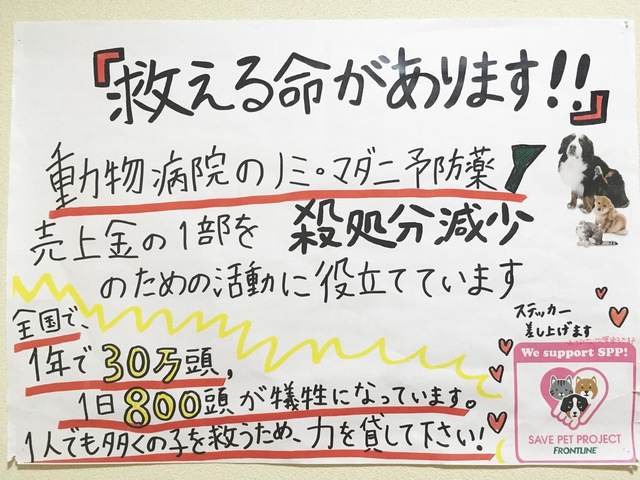 『救える命があります!!』
動物病院のノミ・マダニ予防薬
売上金の1部を 殺処分減少
のための活動に役立てています
全国で、
1年で30万頭,
1日800頭が犠牲になっています。
1人でも多くの子を救うため、力を貸して下さい!
ステッカー
差し上げます
We support SPP!
SAVE PET PROJECT
FRONTLINE